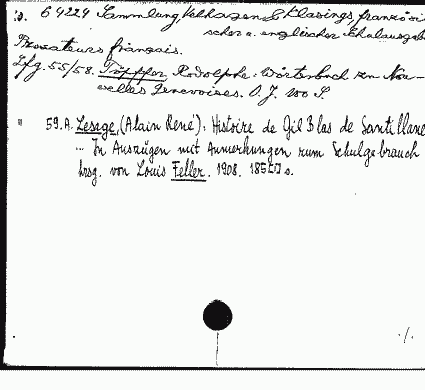 69224 Sammlung Velhagen & Klasings französi-
scher u. englischer Schulausgab
Prosateurs français.
Lfg. 55/58. Töpffer, Rodolphe: Wörterbuch zu Nou-
velles Genevoises. O. J. 100 S.
59.A. Lesage, (Alain René): Histoire de Gil Blas de Santillane
... In Auszügen mit Anmerkungen zum Schulgebrauch
hrsg. von Louis Feller. 1908. 185 S.
./.